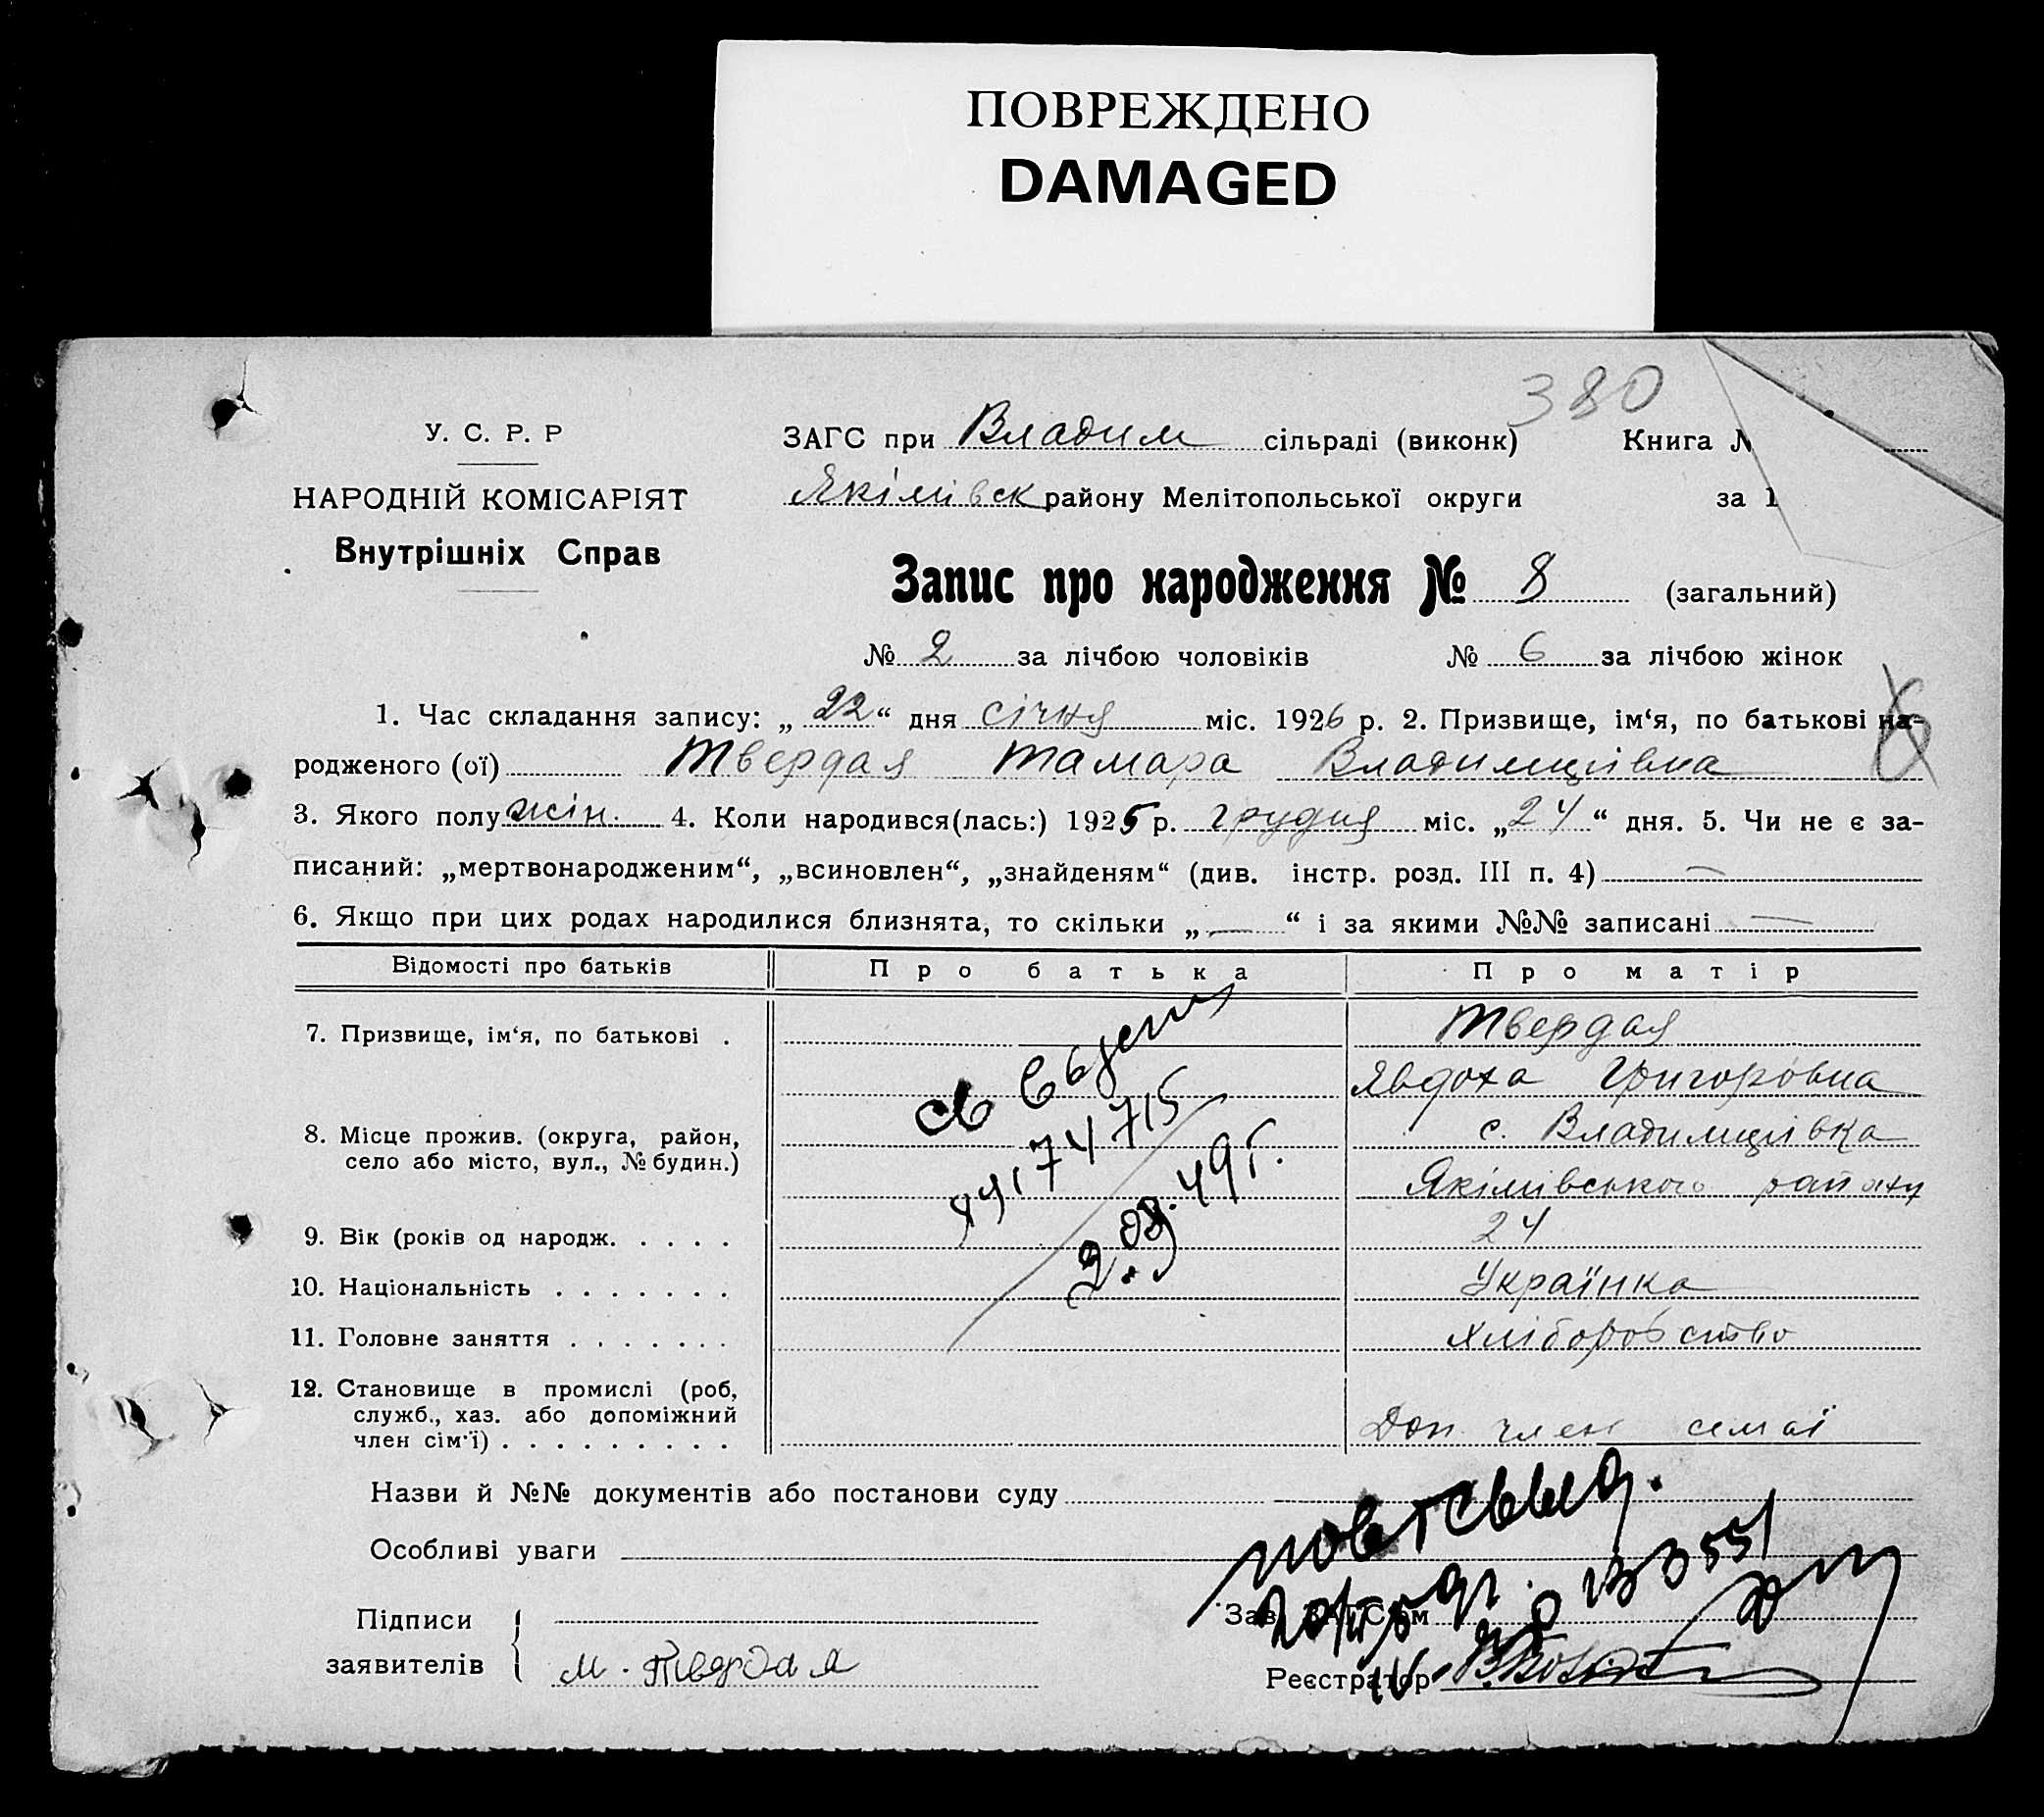 ПОВРЕЖДЕНО
DAMAGED
380
У. С. Р. Р
ЗАГС при Владим сільраді (виконк) Книга №
НАРОДНІЙ КОМІСАРІЯТ
Якімівск району Мелітопольської округи за 1
Внутрішніх Справ
Запис про народження № 8 (загальний)
№ 2 за лічбою чоловіків № 6 за лічбою жінок
1. Час складання запису: „ 22 “ дня січня міс. 1926 р. 2. Призвище, ім‘я, по батькові на-
родженого (ої) Твердая Тамара Владимирівна
3. Якого полу жін. 4. Коли народився(лась:) 1925 р. грудня міс. „ 24 “ дня. 5. Чи не є за-
писаний: „мертвонародженим“, „всиновлен“, „знайденям“ (див. інстр. розд. III п. 4) —
6. Якщо при цих родах народилися близнята, то скільки „ — “ і за якими №№ записані —
Відомості про батьків Про батька Про матір
7. Призвище, ім‘я, по батькові . Твердая
Явдоха Григоровна
8. Місце прожив. (округа, район, с. Владимирівка
село або місто, вул., № будин.)
Якімівського району
9. Вік (років од народж. . . . . 24
10. Національність . . . . . . . Українка
11. Головне заняття . . . . . . . Хліборобство
12. Становище в промислі (роб,
служб., хаз. або допоміжний
член сім‘ї) . . . . . . . . . Доп. член семаї
74715
49г.
Назви й №№ документів або постанови суду
Особливі уваги
Підписи
заявителів
м. Твердая
Зав. ЗАГСом
Реєстратор